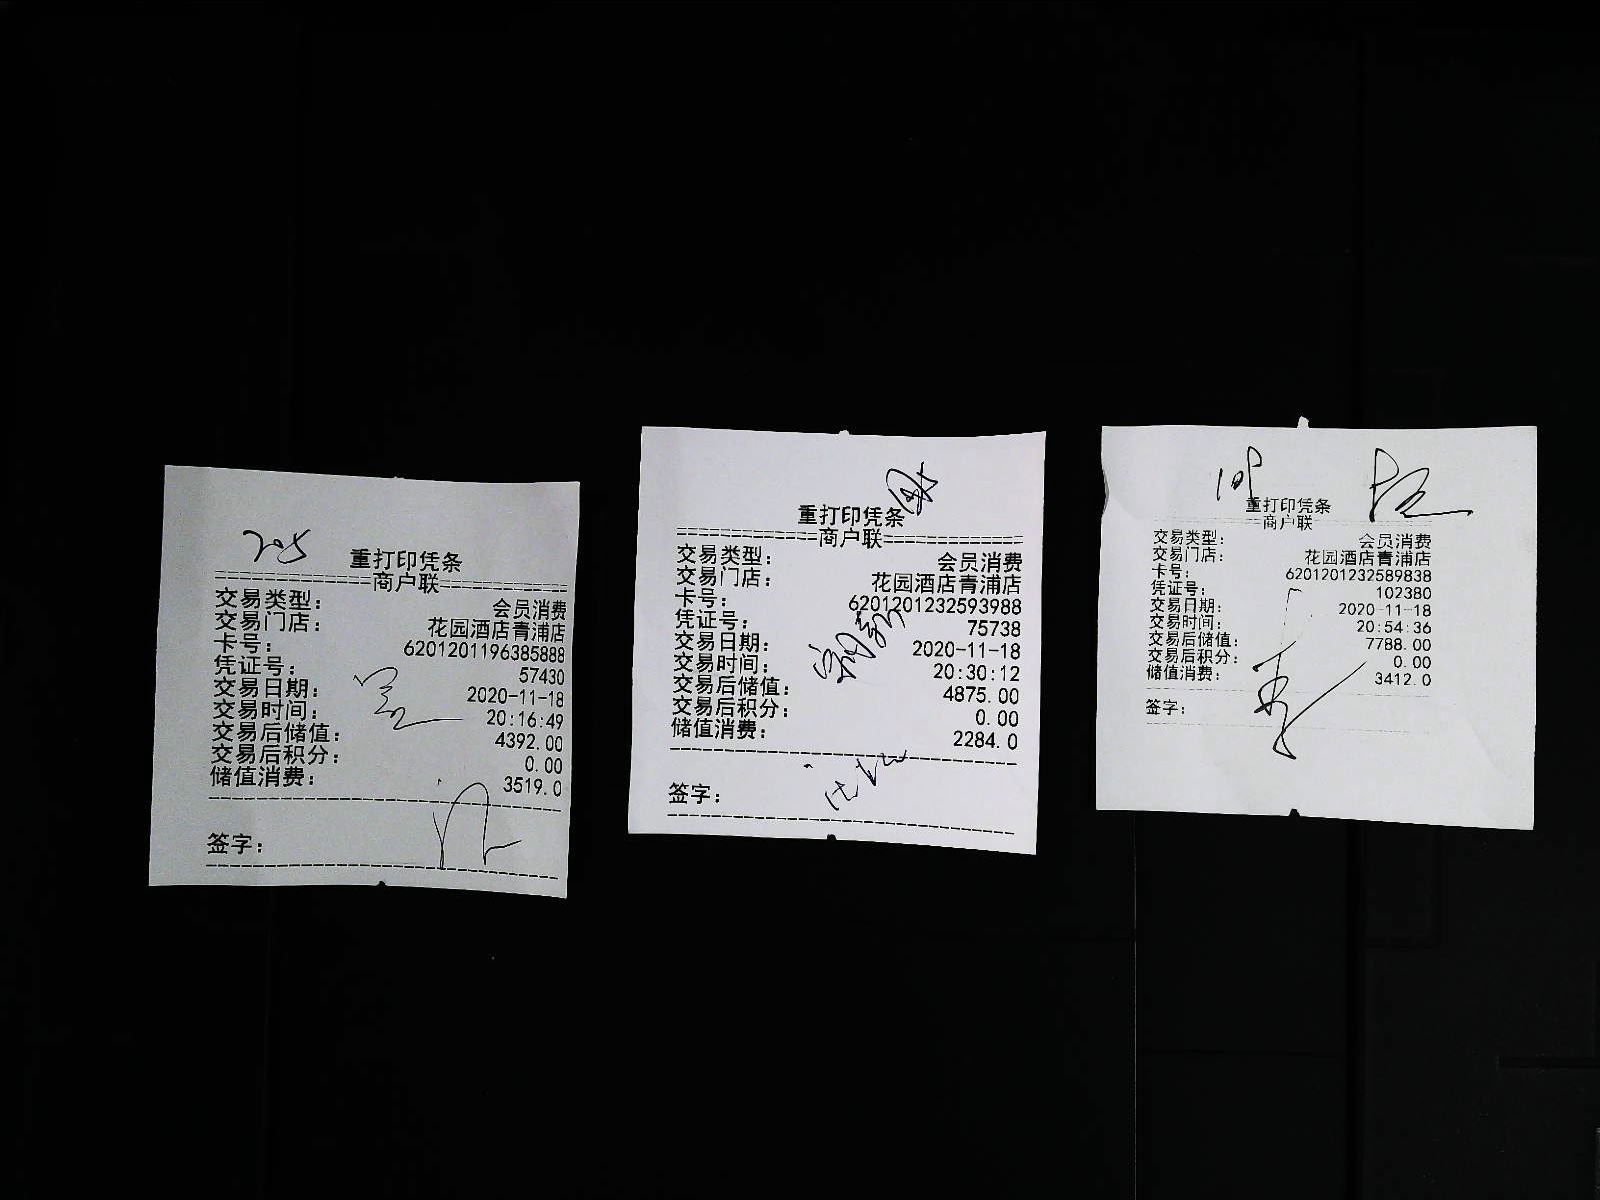 205
重打印凭条
商户联
交易类型： 会员消费
交易门店： 花园酒店青浦店
卡号： 6201201196385888
凭证号： 57430
交易日期： 2020-11-18
交易时间： 20:16:49
交易后储值： 4392.00
交易后积分： 0.00
储值消费： 3519.0
签字：
重打印凭条
商户联
交易类型： 会员消费
交易门店： 花园酒店青浦店
卡号： 6201201232593988
凭证号： 75738
交易日期： 2020-11-18
交易时间： 20:30:12
交易后储值： 4875.00
交易后积分： 0.00
储值消费： 2284.0
签字：
重打印凭条
商户联
交易类型： 会员消费
交易门店： 花园酒店青浦店
卡号： 6201201232589838
凭证号： 102380
交易日期： 2020-11-18
交易时间： 20:54:36
交易后储值： 7788.00
交易后积分： 0.00
储值消费： 3412.0
签字：